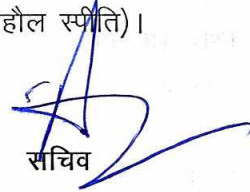 हौल स्पीति)।
सचिव